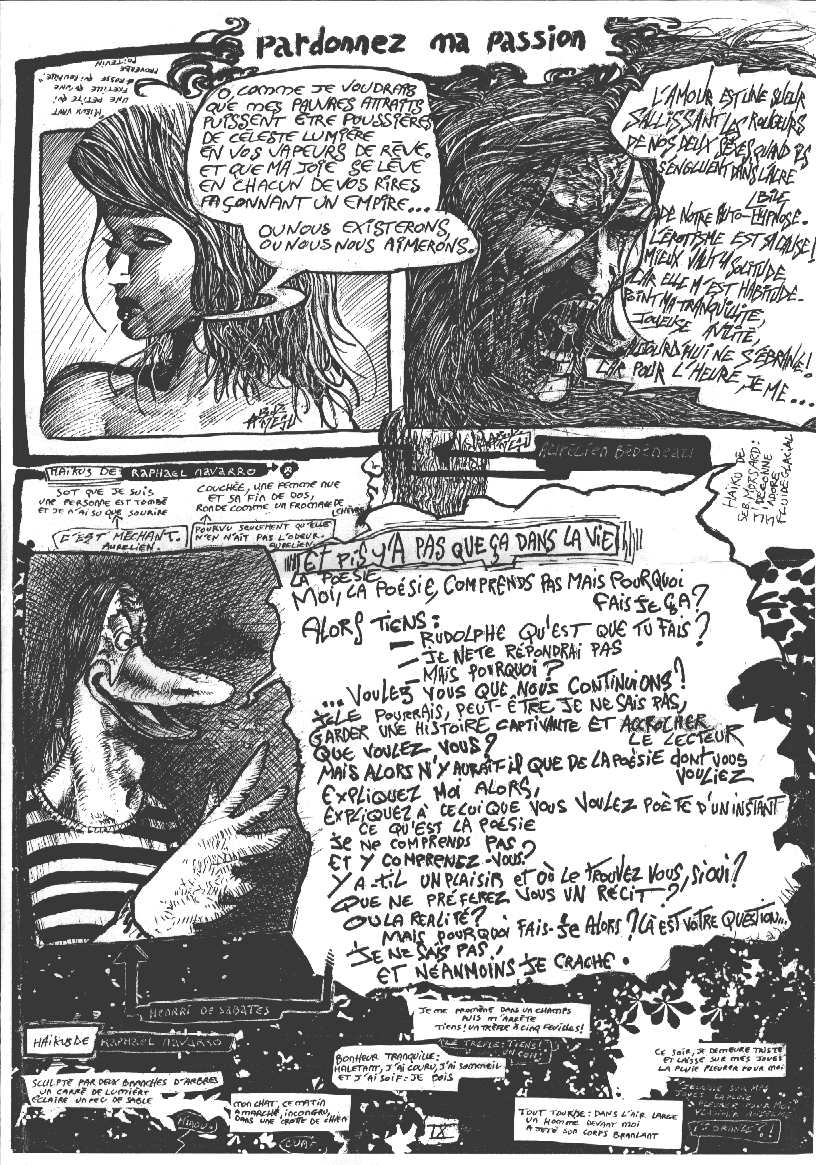 Pardonnez ma passion
MIEUX VAUT
UNE PETITE QUI
FRETILLE QU'UNE
GROSSE QUI ROUPILLE".
PROVERBE
POITEVIN
Ô, COMME JE VOUDRAIS
QUE MES PAUVRES ATTRAITS
PUISSENT ÊTRE POUSSIÈRES
DE CÉLESTE LUMIÈRE
EN VOS VAPEURS DE RÊVE.
ET QUE MA JOIE SE LÈVE
EN CHACUN DE VOS RIRES
FAÇONNANT UN EMPIRE...
OU NOUS EXISTERONS,
OU NOUS NOUS AIMERONS.
L'AMOUR EST UNE SUEUR
SALLISSANT LES ROUGEURS
DE NOS DEUX SEXES QUAND ILS
S'ENGLUENT DANS L'ACRE
BILE
DE NOTRE AUTO-HYPNOSE.
L'ÉROTISME EST SA CAUSE!
MIEUX VAUT MA SOLITUDE
CAR ELLE M'EST HABITUDE.
POINT MA TRANQUILLITÉ,
JOYEUSE AVILITÉ,
AUJOURD'HUI NE S'ÉBRANLE!
CAR POUR L'HEURE, JE ME...
Aurélien Bédéneau
HAIKUS DE RAPHAEL NAVARRO
SOT QUE JE SUIS
UNE PERSONNE EST TOMBÉ
ET JE N'AI SU QUE SOURIRE
C'EST MÉCHANT.
AURELIEN.
COUCHÉE, UNE FEMME NUE
ET SA FIN DE DOS,
RONDE COMME UN FROMAGE DE CHÈVRE
POURVU SEULEMENT QU'ELLE
N'EN N'AIT PAS L'ODEUR.
AURELIEN
HAIKU DE
SEB MORSARD:
J'DÉCONNE
J'ADORE
FLUIDE GLACIAL
ET PIS Y'A PAS QUE ÇA DANS LA VIE
LA POÉSIE
MOI, LA POÉSIE, COMPRENDS PAS MAIS POURQUOI
FAIS JE ÇA?
ALORS TIENS:
- RUDOLPHE QU'EST QUE TU FAIS?
- JE NE TE RÉPONDRAI PAS
- MAIS POURQUOI?
... VOULEZ VOUS QUE NOUS CONTINUIONS?
JE LE POURRAIS, PEUT-ÊTRE JE NE SAIS PAS,
GARDER UNE HISTOIRE CAPTIVANTE ET ACCROCHER
LE LECTEUR
QUE VOULEZ VOUS?
MAIS ALORS N'Y AURAIT-IL QUE DE LA POÉSIE DONT VOUS
VOULIEZ
EXPLIQUEZ MOI ALORS,
EXPLIQUEZ À CELUI QUE VOUS VOULEZ POÈTE D'UN INSTANT
CE QU'EST LA POÉSIE
JE NE COMPRENDS PAS
ET Y COMPRENEZ-VOUS?
Y A-T-IL UN PLAISIR ET OÙ LE TROUVEZ VOUS, SI OUI?
QUE NE PRÉFÉREZ VOUS UN RÉCIT?
OU LA RÉALITÉ?
MAIS POURQUOI FAIS-JE ALORS? LÀ EST VOTRE QUESTION...
JE NE SAIS PAS!
ET NÉANMOINS JE CRACHE.
HENRI DE SABATES
HAIKUS DE RAPHAEL NAVARRO
SCULPTÉ PAR DEUX BRANCHES D'ARBRES
UN CARRÉ DE LUMIÈRE
ÉCLAIRE UN PEU DE SABLE
MON CHAT, CE MATIN
A MARCHÉ, INCONGRU,
DANS UNE CROTTE DE CHIEN
MIAOU!
OUAF
BONHEUR TRANQUILLE:
HALETANT, J'AI COURU, J'AI SOMMEIL
ET J'AI SOIF: JE BOIS
JE ME PROMÈNE DANS UN CHAMPS
PUIS M'ARRÊTE
TIENS! UN TRÈFLE À CINQ FEUILLES!
LE TRÈFLE: TIENS!
UN CON!
TOUT TOURNE: DANS L'AIR LARGE
UN HOMME DEVANT MOI
A JETÉ SON CORPS BRANLANT
CE SOIR, JE DEMEURE TRISTE
ET LAISSE SUR MES JOUES
LA PLUIE PLEURER POUR MOI
IX